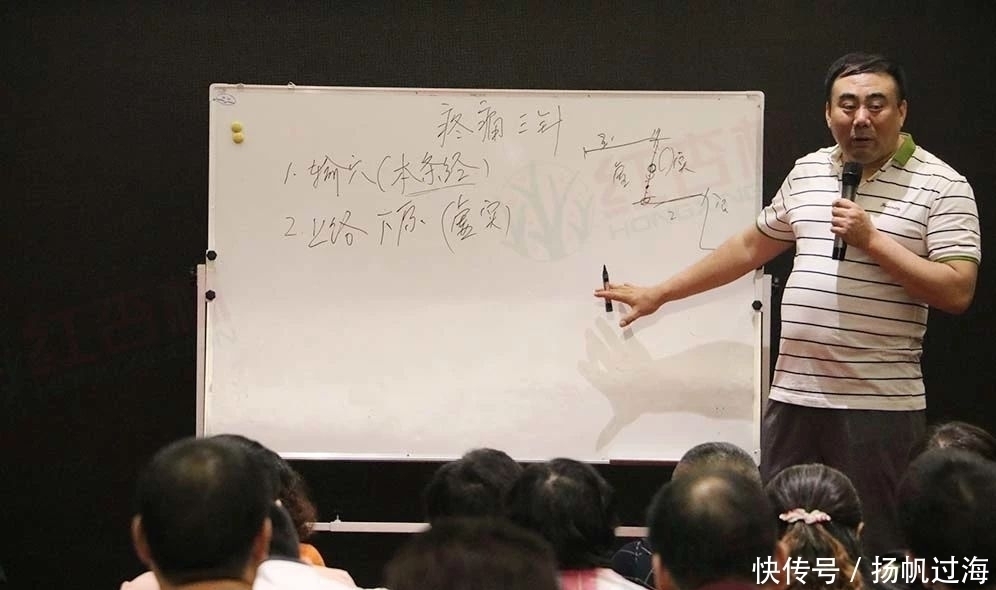 疼痛三针
1. 输穴(本条经)
2. 上络下原(虚实)
虚 实
2
快传号 / 扬帆过海